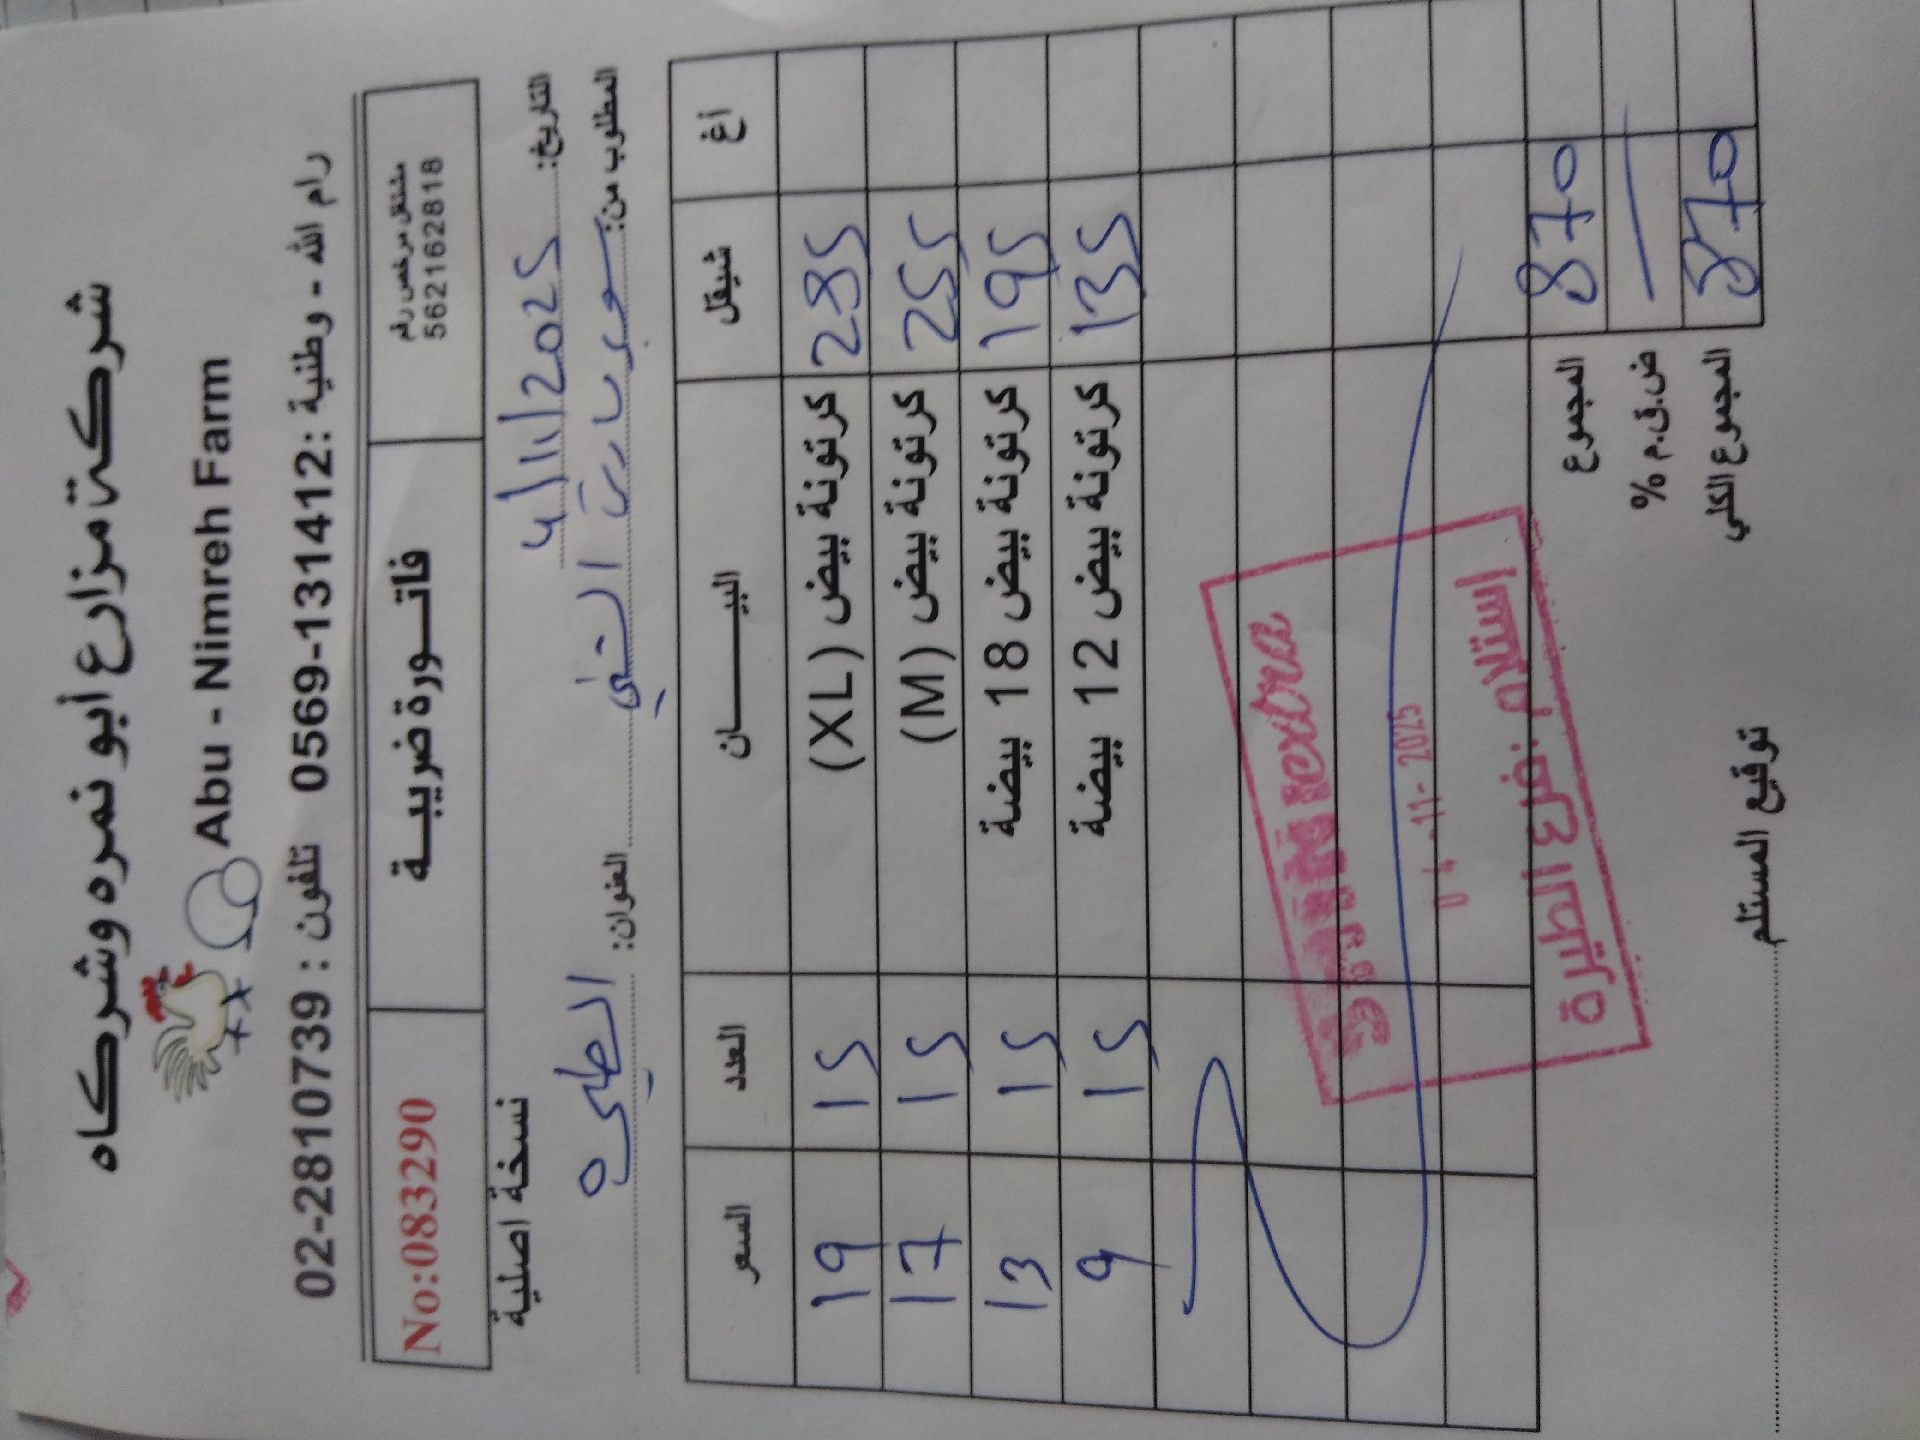 شركة مزارع أبو نمره وشركاه
Abu - Nimreh Farm
رام الله - وطنية : 0569-131412 تلفون : 02-2810739
مشتغل مرخص رقم
562162818
فاتورة ضريبية
No:083290
التاريخ: 4/11/2025
نسخة اصلية
المطلوب من: سوبر ماركت العنوان: الطيره
أغ شيقل البيان العدد السعر
285 كرتونة بيض (XL) 15 19
255 كرتونة بيض (M) 15 17
195 كرتونة بيض 18 بيضة 15 13
135 كرتونة بيض 12 بيضة 15 9
extra
04-11-2025
إستلام : فرع الطيرة
870 المجموع
ض.ق.م %
870 المجموع الكلي
توقيع المستلم